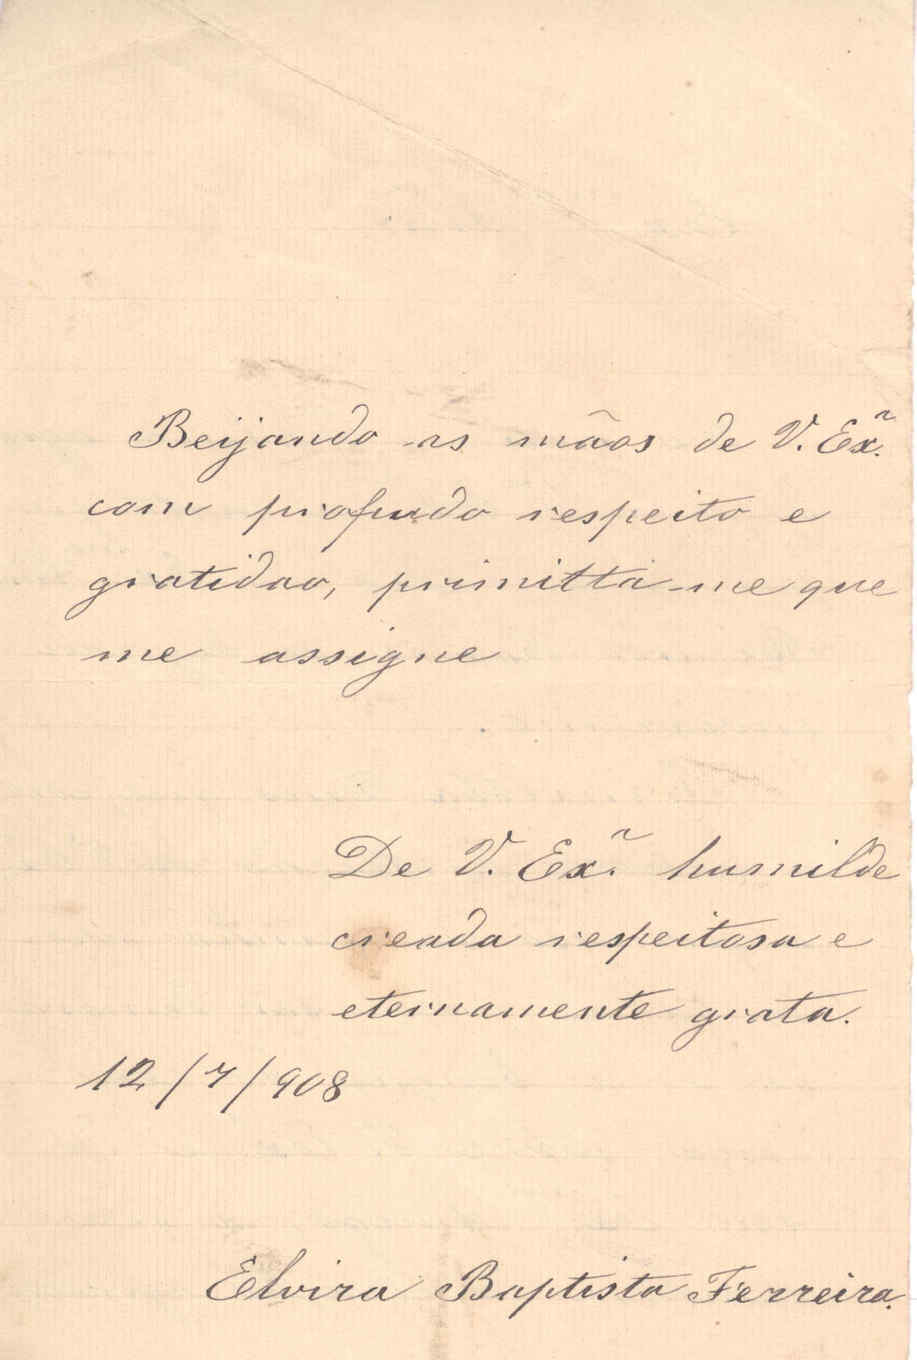 Beijando as mãos de V. Ex.ª
com profudo respeito e
gratidao, primitta-me que
me assigne
De V. Ex.ª humilde
creada respeitosa e
eternamente grata.
12/7/908
Elvira Baptista Ferreira.